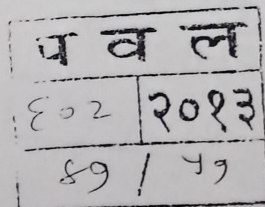 प व ल
६०२ २०१३
४७ / ५७